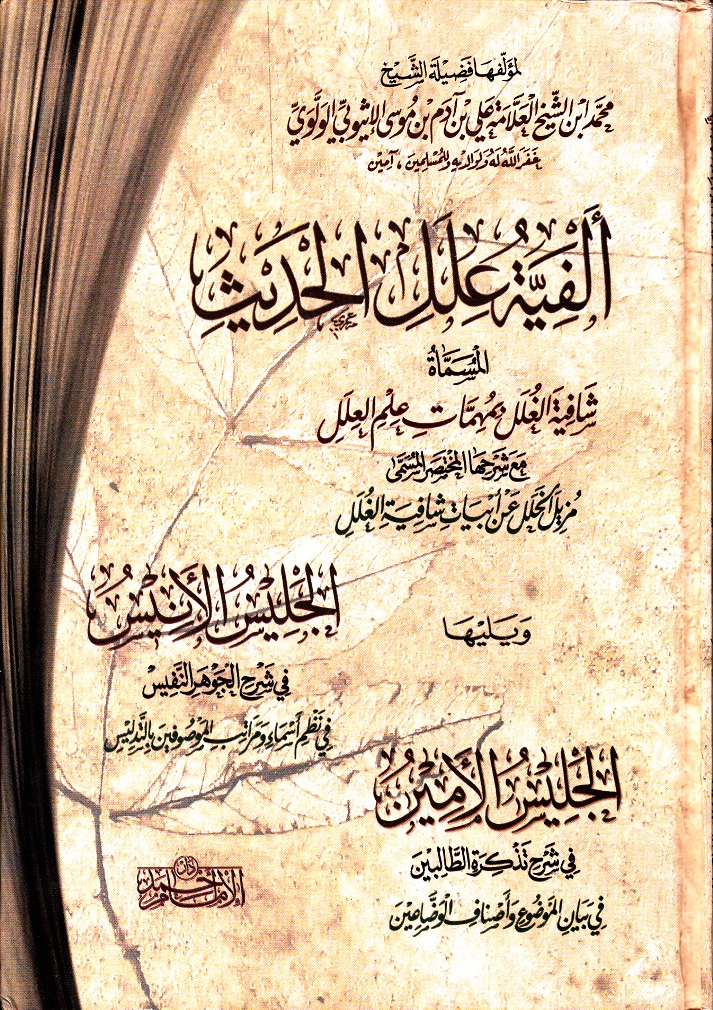 لمؤلفها فضيلة الشيخ
محمد ابن الشيخ العلامة علي بن آدم بن موسى الإثيوبي الولوي
غفر الله له ولوالديه وللمسلمين، آمين
ألفية علل الحديث
المسماة
شافية الغلل بمهمات علم العلل
مع شرحها المختصر المسمى
مزيل الخلل عن أبيات شافية الغلل
ويليها
الجليس الأنيس
في شرح الجوهر النفيس
في نظم أسماء ومراتب الموصوفين بالتدليس
الجليس الأمين
في شرح تذكرة الطالبين
في بيان الموضوع وأصناف الوضاعين
دار
الإمام أحمد